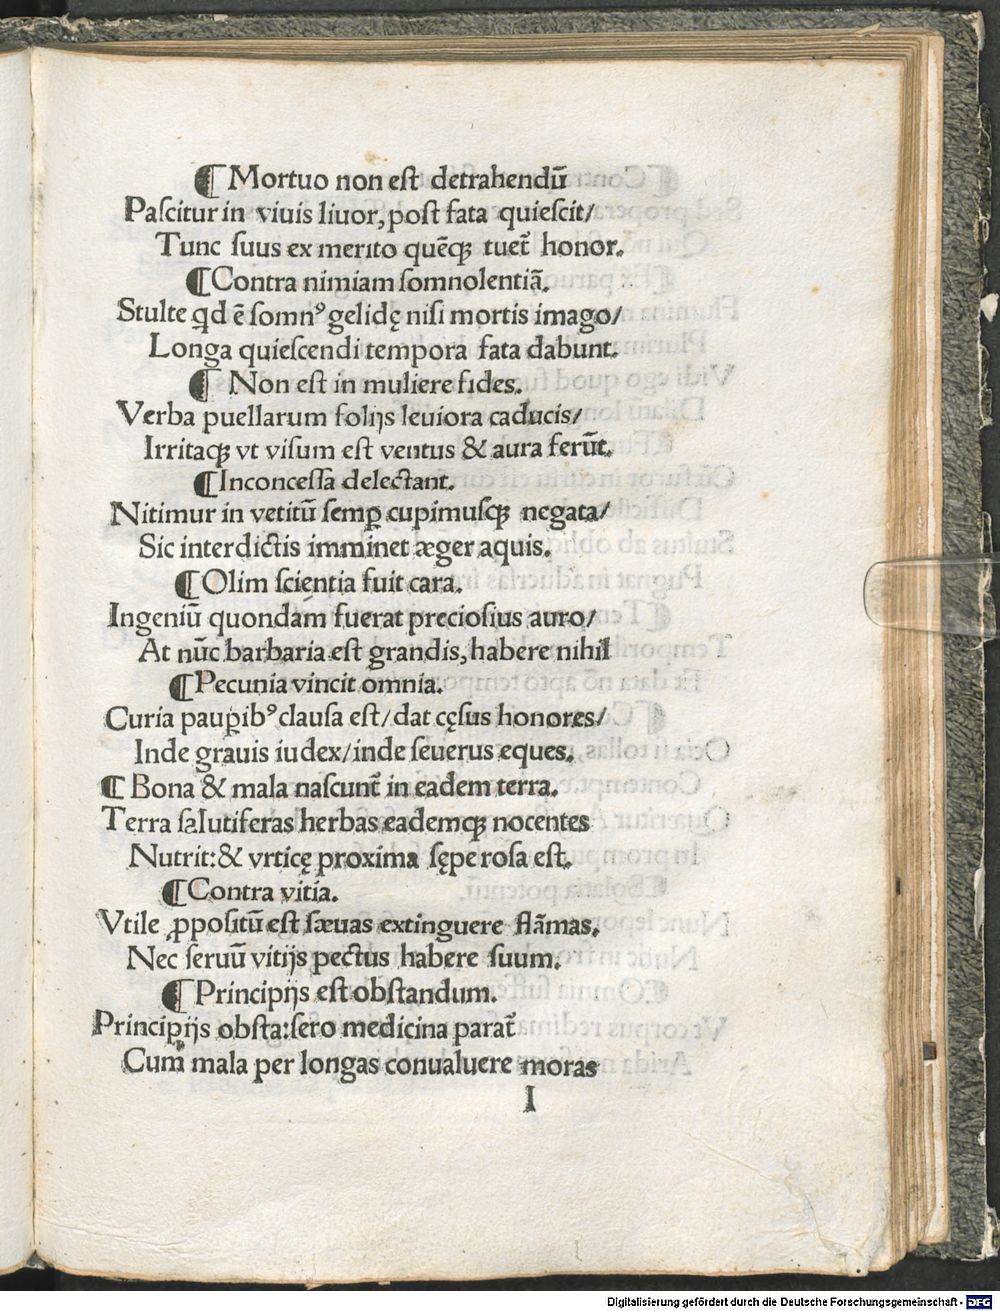 ¶ Mortuo non est detrahendū
Pascitur in viuis liuor, post fata quiescit/
Tunc suus ex merito quēqꝫ tuet̄ honor.
¶ Contra nimiam somnolentiā.
Stulte qd ē somnꝰ gelidę nisi mortis imago/
Longa quiescendi tempora fata dabunt.
¶ Non est in muliere fides.
Verba puellarum folijs leuiora caducis/
Irritaqꝫ vt visum est ventus & aura ferūt.
¶ Inconcessa delectant.
Nitimur in vetitū semꝑ cupimusqꝫ negata/
Sic interdictis imminet æger aquis.
¶ Olim scientia fuit cara.
Ingeniū quondam fuerat preciosius auro/
At nūc barbaria est grandis, habere nihil
¶ Pecunia vincit omnia.
Curia pauꝑibꝰ clausa est/ dat cęsus honores/
Inde grauis iudex/ inde seuerus eques.
¶ Bona & mala nascunt̄ in eadem terra.
Terra salutiferas herbas eademqꝫ nocentes
Nutrit: & vrticę proxima sępe rosa est.
¶ Contra vitia.
Vtile ꝓpositū est sæuas extinguere flāmas.
Nec seruū vitijs pectus habere suum.
¶ Principijs est obstandum.
Principijs obsta: sero medicina parat̄
Cum mala per longas conualuere moras
I
Digitalisierung gefördert durch die Deutsche Forschungsgemeinschaft - DFG